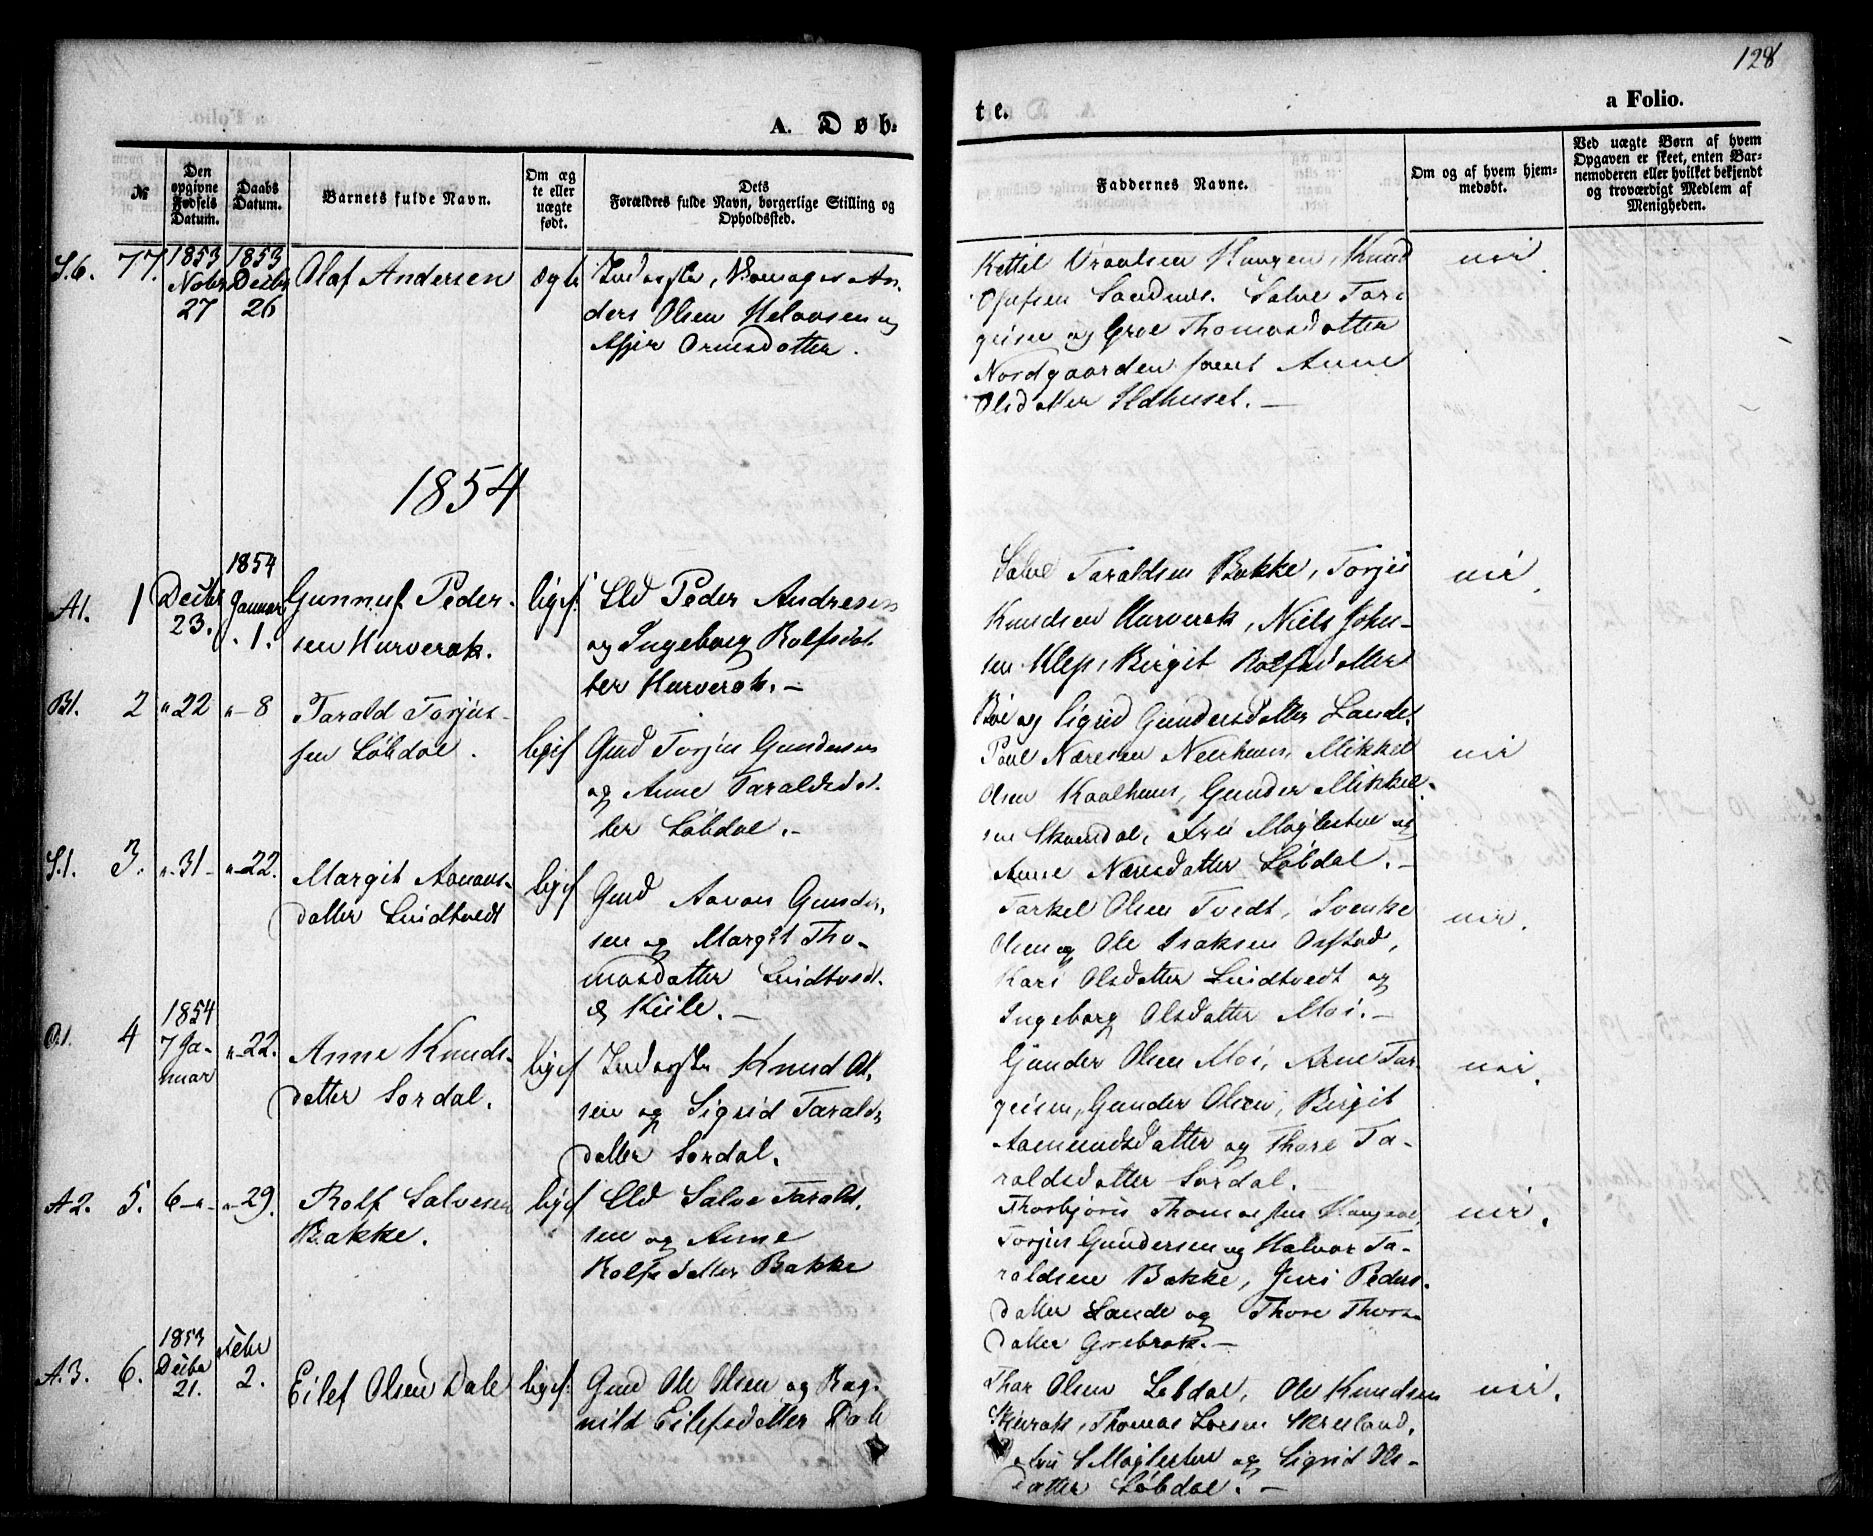 128
A. Døb-
te.
a Folio.
№
Den opgivne Fødsels Datum.
Daabs Datum.
Barnets fulde Navn.
Om ægte eller uægte født.
Dets Forældres fulde Navn, borgerlige Stilling og Opholdssted.
Faddernes Navne.
Om og af hvem hjemmedøbt.
Ved uægte Børn af hvem Opgaven er skeet, enten Barnemoderen eller hvilket bekjendt og troværdigt Medlem af Menigheden.
S.6. 77.
1853 Nobr 27
1853 Decbr 26
Olaf Andersen
ægte
Anders Olsen
og
Ormsdatter.
Kettil Haugen, Knud
Olufsen Salve Tar-
geisen og Groe Thomasdatter
Nordgaarden samt Anne
Olsdatter Ildhuset. —
nei.
1854
A1. 1
Decbr 23.
1854 Januar 1.
Gunnuf Peder-
sen Hurverak.
liges.
Lld Peder Andresen
og Ingeborg Rolfsdat-
ter Hurverak. —
Salve Taraldsen Bakke, Torjus
Knudsen Hurverak, Niels John-
sen Klep, Birgit Rolfsdatter
Bøe og Sigrid Gundersdatter Lande.
nei.
B1. 2
" 22
" - 8
Tarald Torjus-
sen Løbdal.
liges
Gmd Torjus Gundersen
og Anne Taraldsdat-
ter Løbdal. —
Poul Næresen Mikkel
Olsen Kaalhuus, Gunder Mikkel-
sen
Anne Næresdatter Løbdal. —
nei
S.1. 3.
" - 31 -
" - 22.
Margit Aanons-
datter Lindtvedt
liges
Gmd Aanon Gunder-
sen og Margit Tho-
masdatter Lindtvedt
& Kiile. —
Tarkel Olsen Tvedt, Svenke
Olsen og Ole Isaksen
Kari Olsdatter Lindtvedt og
Ingeborg Olsdatter Moi. —
nei.
4
1854 7 Januar
" - 22.
Anne Knuds-
datter Sordal.
liges
Inderste Knud Ol-
sen og Sigrid Taralds-
datter Sordal.
Gunder Olsen Moi, Arne Tar-
geisen, Gunder Olsen, Birgit
Aamundsdatter og Thore Ta-
raldsdatter Sordal.
nei.
A2. 5.
6 - " -
" - 29.
Rolf Salvesen
Bakke.
liges
Lld Salve Tarald-
sen og Anne
Rolfsdatter Bakke
Thorbjørn Thomassen
Torjus Gundersen og Halvor Ta-
raldsen Bakke, Juri Peders-
datter Lande og Thore Thors-
datter —
nei.
A.3. 6.
1853 Decbr 21.
Febr 2.
Eilef Olsen Dale
liges.
Gmd Ole Olsen og Rag-
nild Eilefsdatter Dale
Thor Olsen Løbdal, Ole Knudsen
Thomas Skreiland,
og Sigrid Ols-
datter Løbdal. —
nei.